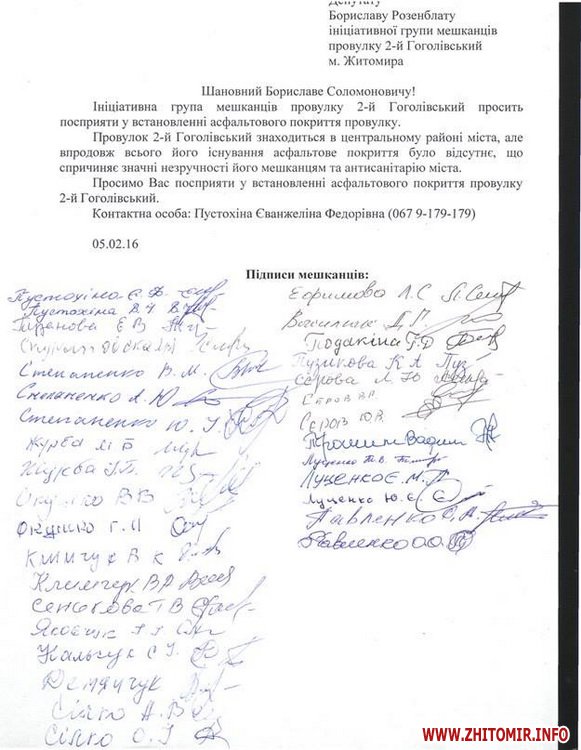 Депутату
Бориславу Розенблату
ініціативної групи мешканців
провулку 2-й Гоголівський
м. Житомира
Шановний Бориславе Соломоновичу!
Ініціативна група мешканців провулку 2-й Гоголівський просить
посприяти у встановленні асфальтового покриття провулку.
Провулок 2-й Гоголівський знаходиться в центральному районі міста, але
впродовж всього його існування асфальтове покриття було відсутнє, що
спричиняє значні незручності його мешканцям та антисанітарію міста.
Просимо Вас посприяти у встановленні асфальтового покриття провулку
2-й Гоголівський.
Контактна особа: Пустохіна Єванжеліна Федорівна (067 9-179-179)
05.02.16
Підписи мешканців:
Пустохіна Є. Ф.
Пустохіна В.
Е В
Степаненко В. М.
Степаненко А. Ю
Степаненко Ю. І.
Журба
Окушко В В
Окушко Г. П
Климчук В К
Климчук В
Сенькова Т В
Кальчук С
Демянчук
Сілко А. В
Сілко О. І
Єфимова Л. С
Подакіна Т. Д
Пузикова К А
Сєрова Л Ю
Сєров В. Р.
Сєров Ю. В.
Трошин Вадим
Луценко Т. В.
Луценко Є. М.
Луценко Ю. Є
Павленко С. А.
Павленко О. О.
WWW.ZHITOMIR.INFO